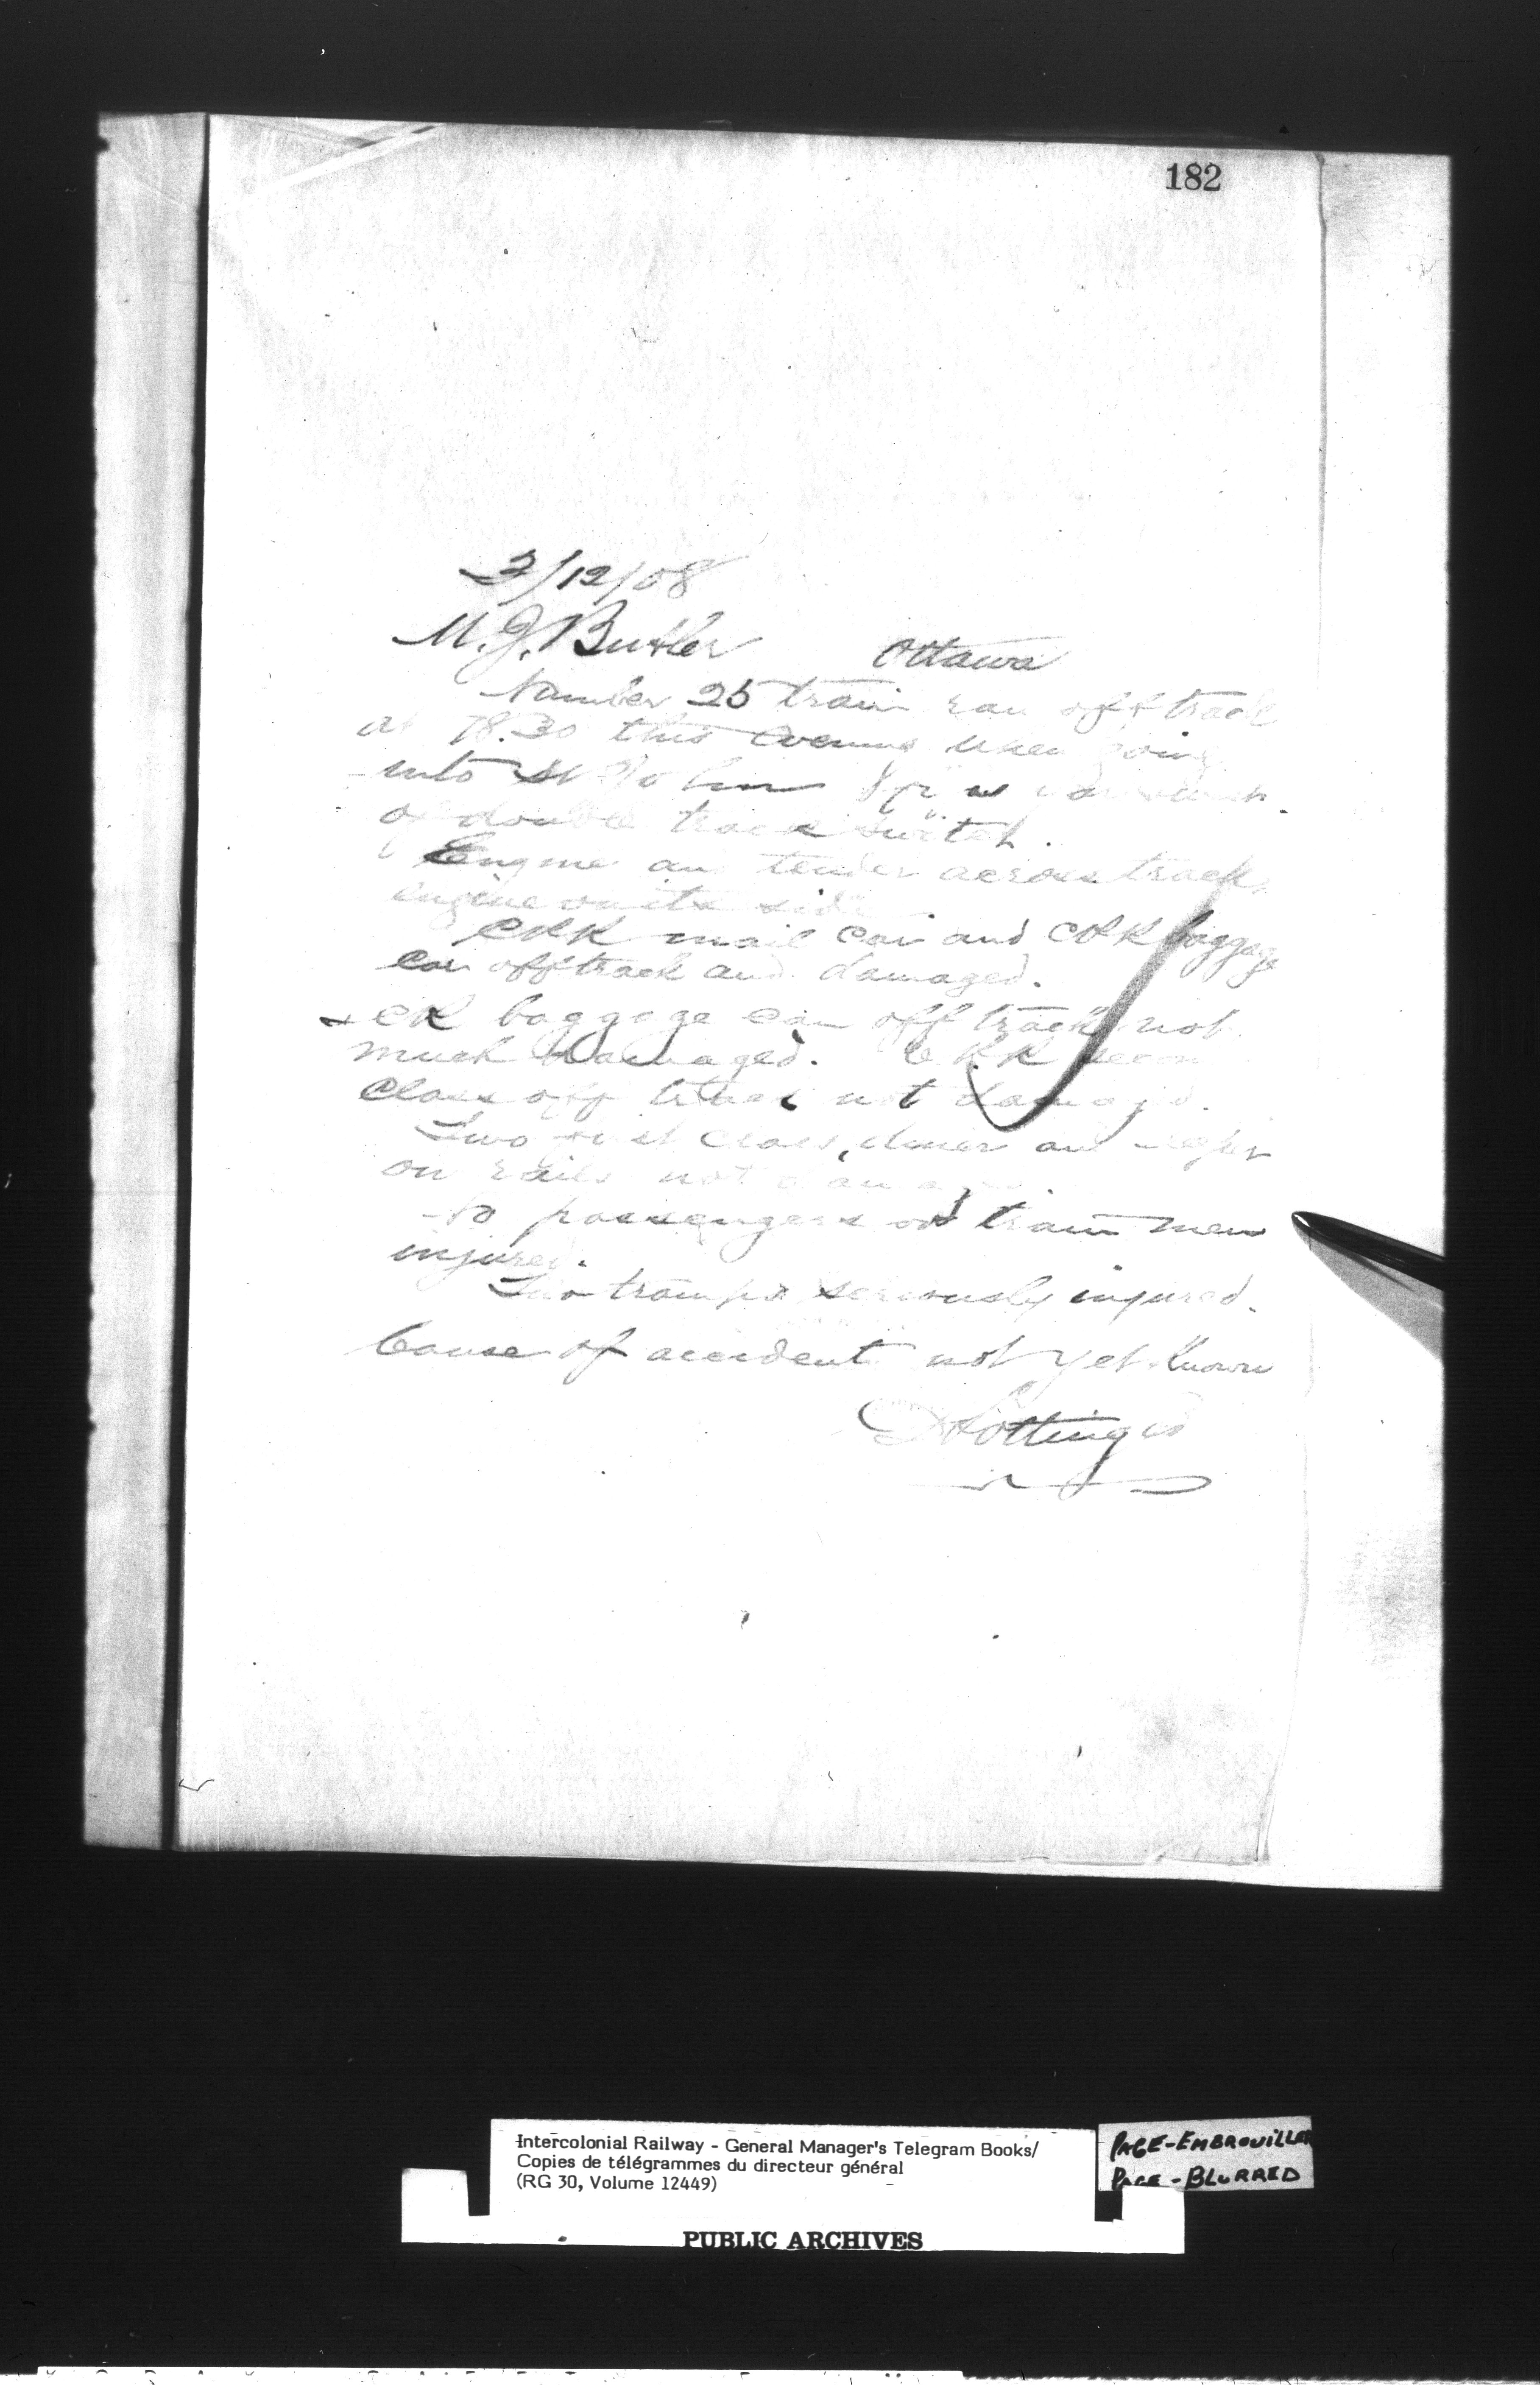 182
3/12/08
M. J. Butler Ottawa
Number 25 train ran off track
at 18.30 this evening when going
into St John
at double track switch.
Engine and tender across track,
engine on its side
CPR mail car and CPR baggage
car off track and damaged.
ICR baggage car off track not
much damaged. CPR second
class off track not damaged.
Two first class, diner and
on rails not damaged
No passengers or train men
injured.
Two tramps seriously injured.
Cause of accident not yet known
D Pottinger
Intercolonial Railway - General Manager's Telegram Books/
Copies de télégrammes du directeur général
(RG 30, Volume 12449)
PUBLIC ARCHIVES
PAGE-EMBROUILLER
PAGE-BLURRED